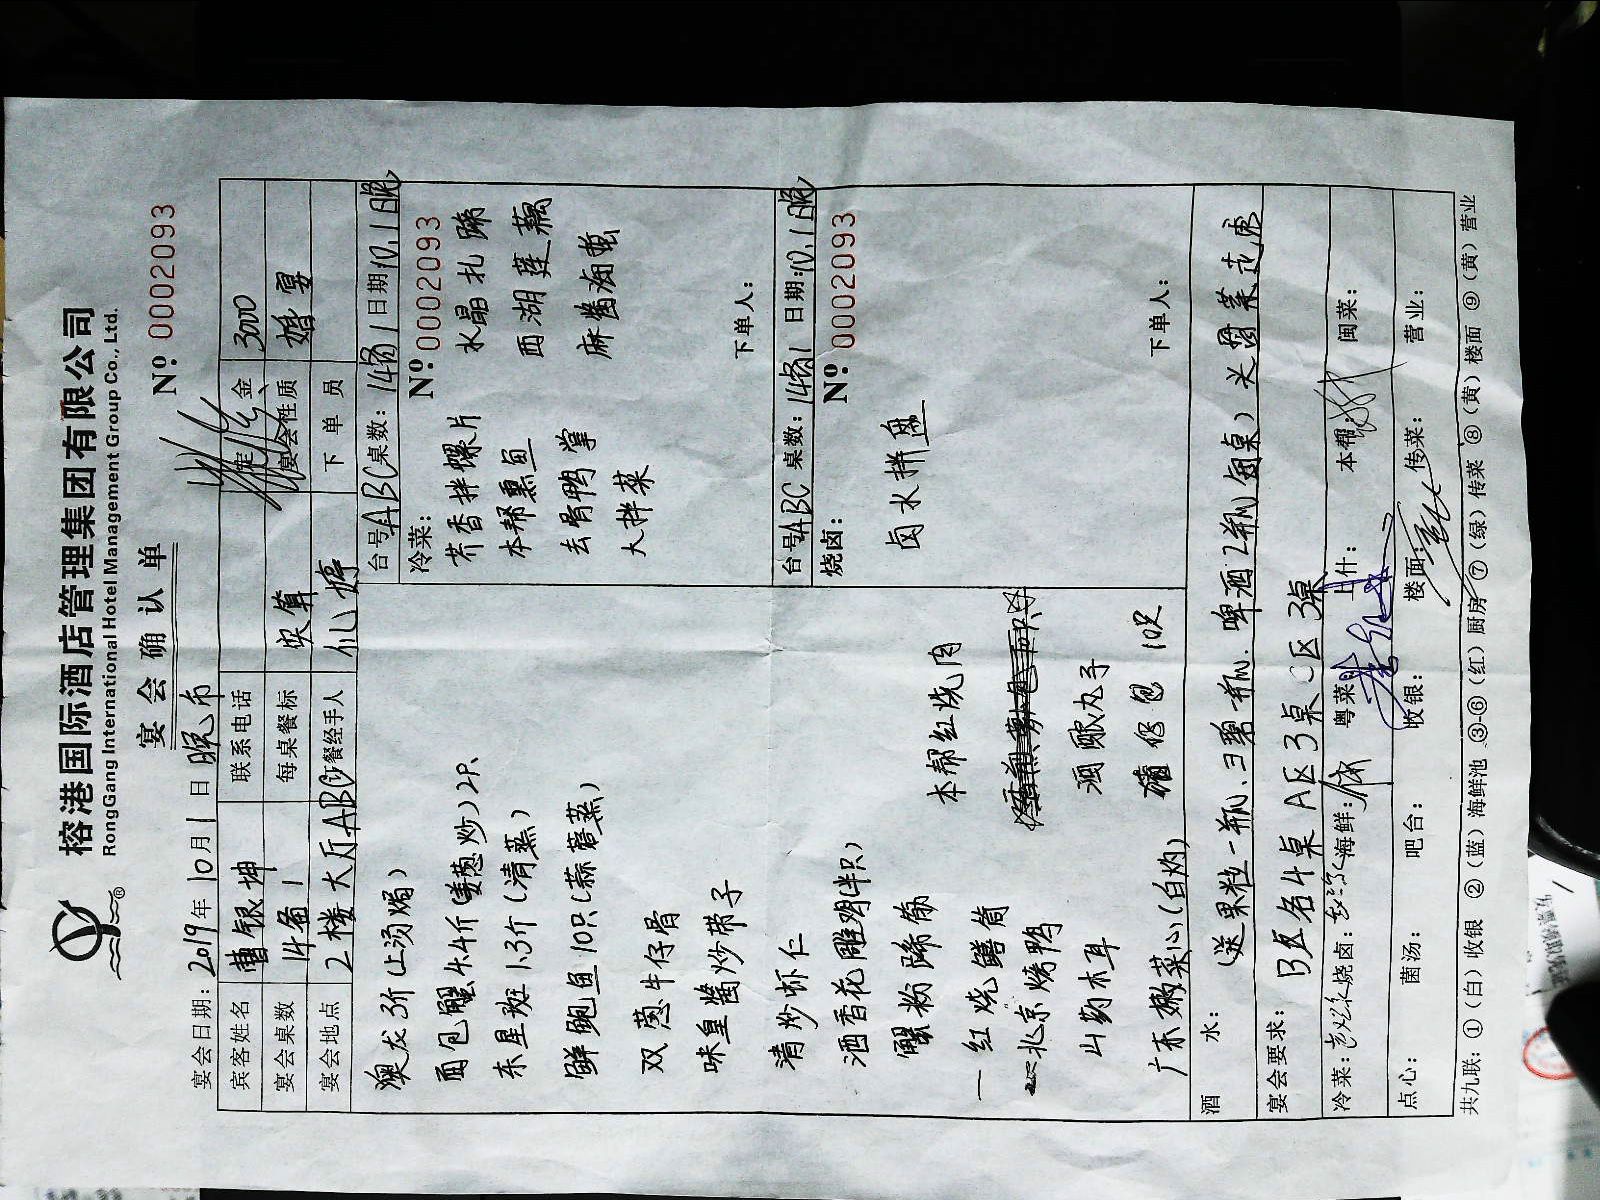 榕港国际酒店管理集团有限公司
RongGang International Hotel Management Group Co., Ltd.
宴会确认单
宴会日期：2019年10月1日 晚市 Nº 0002093
宾客姓名 曹银坤 联系电话 定金 3000
宴会桌数 14备1 每桌餐标 实算 宴会性质 婚宴
宴会地点 2楼大厅ABC 订餐经手人 下单员
澳龙3斤(上汤焗)
面包蟹4.4斤(姜葱炒)2只
东星斑1.3斤(清蒸)
鲜鲍鱼10只(蒜蓉蒸)
双葱牛仔骨
味皇酱炒带子
清炒虾仁
酒香花雕鸡(半只)
蟹粉蹄筋 本帮红烧肉
红烧鳝筒
北京烤鸭
山药木耳 酒酿丸子
广东嫩菜心(白灼) 10只
台号ABC 桌数：14备1 日期：10.1晚
冷菜： Nº 0002093
芥香拌螺片 水晶扎蹄
本帮熏鱼 西湖莲藕
去骨鸭掌 麻酱海蜇
大拌菜
下单人：
台号ABC 桌数：14备1 日期：10.1晚
烧卤： Nº 0002093
卤水拼盘
下单人：
酒水： (送果粒一瓶、雪碧一瓶、啤酒2瓶/每桌)
宴会要求： B区名4桌 A区3桌 C区3桌
冷菜： 烧卤： 海鲜： 粤菜： 上什： 本帮： 闽菜：
点心： 菌汤： 吧台： 收银： 楼面： 传菜： 营业：
共九联：①(白)收银 ②(蓝)海鲜池 ③-⑥(红)厨房 ⑦(绿)传菜 ⑧(黄)楼面 ⑨(黄)营业